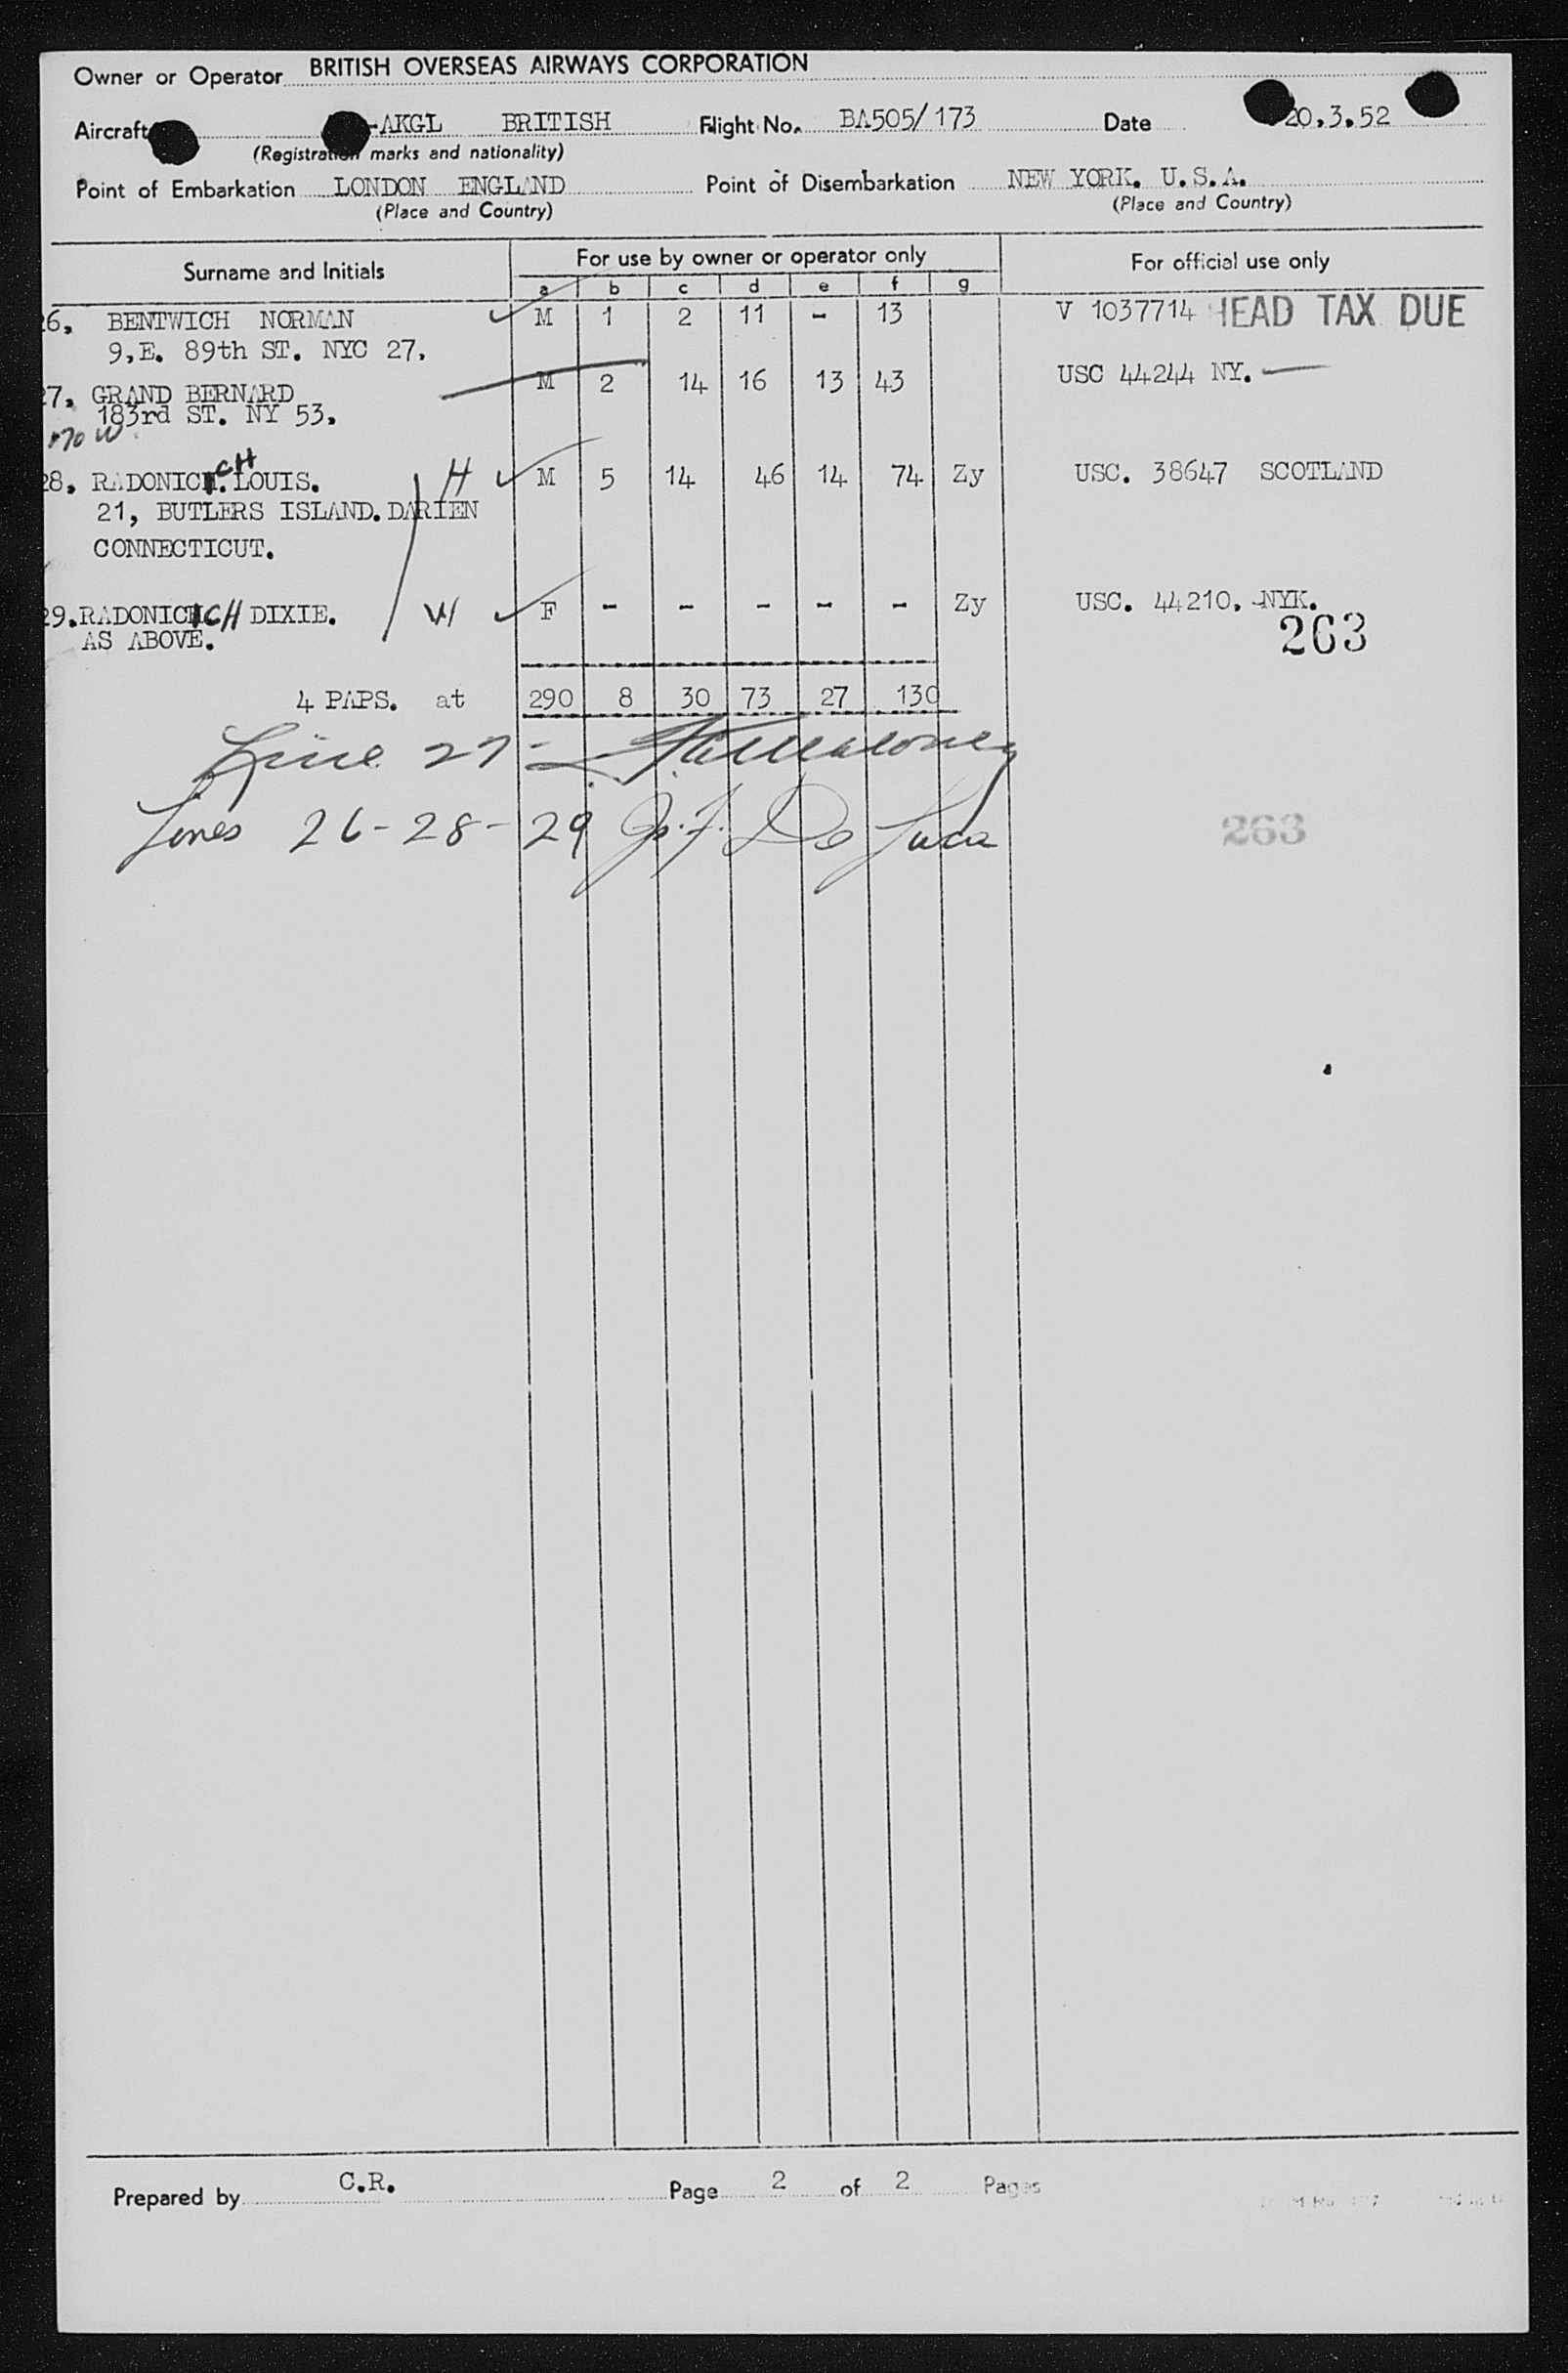 Owner or Operator BRITISH OVERSEAS AIRWAYS CORPORATION
Aircraft -AKGL BRITISH Flight No. BA505/173 Date 20.3.52
(Registration marks and nationality)
Point of Embarkation LONDON ENGLAND Point of Disembarkation NEW YORK. U.S.A.
(Place and Country) (Place and Country)
Surname and Initials For use by owner or operator only For official use only
a b c d e f g
26. BENTWICH NORMAN M 1 2 11 - 13 V 1037714 HEAD TAX DUE
9,E. 89th ST. NYC 27.
27. GRAND BERNARD M 2 14 16 13 43 USC 44244 NY.
183rd ST. NY 53.
70 W
28. RADONICH LOUIS. H M 5 14 46 14 74 Zy USC. 38647 SCOTLAND
21, BUTLERS ISLAND. DARIEN
CONNECTICUT.
29. RADONICH DIXIE. W F - - - - - Zy USC. 44210. NYK.
AS ABOVE. 263
4 PAPS. at 290 8 30 73 27 130
Line 27 -
Lines 26-28-29 J.F. De Luca 263
Prepared by C.R. Page 2 of 2 Pages